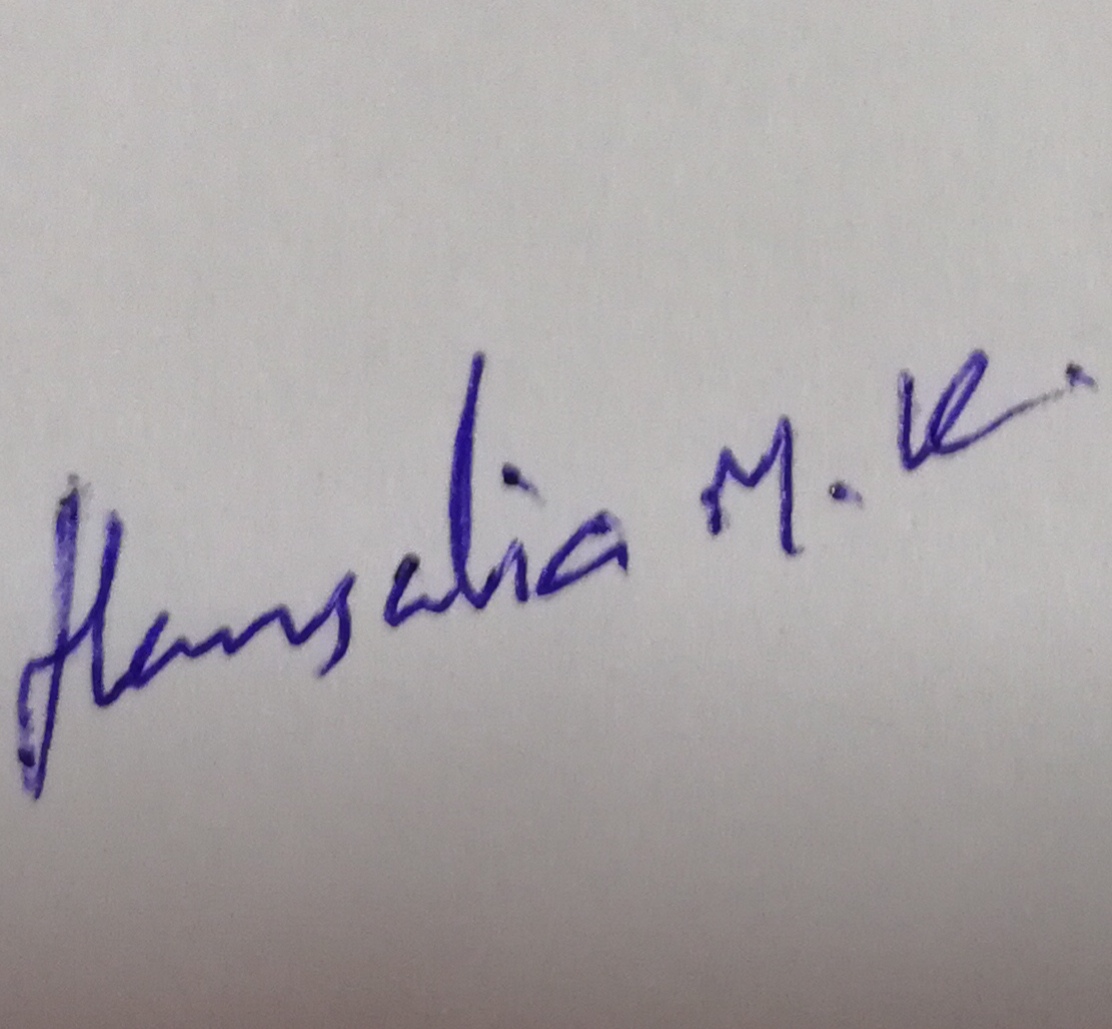 Hansalia M. K.